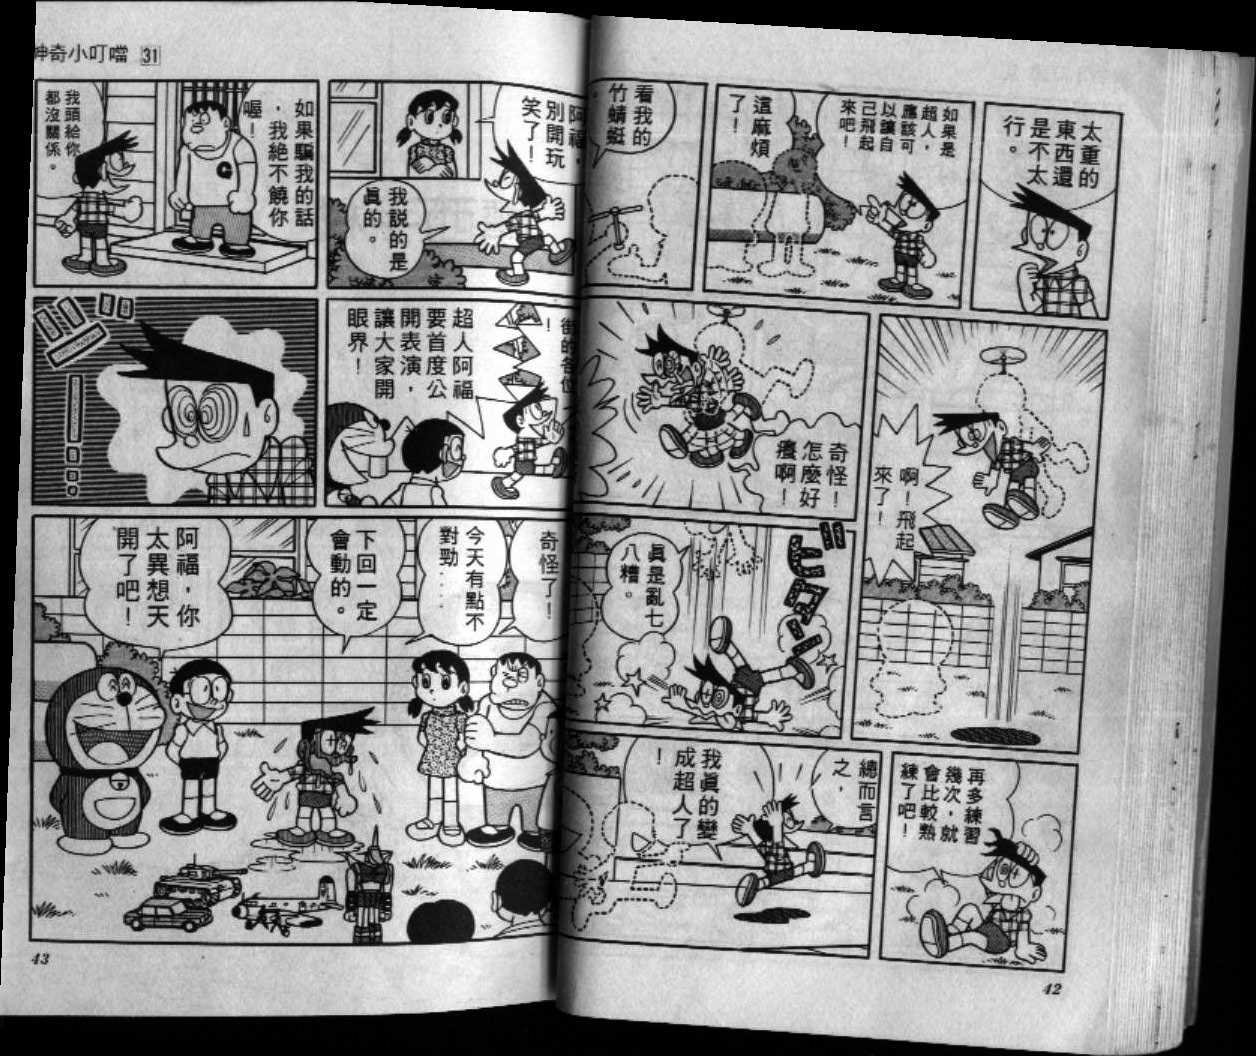 神奇小叮噹 31
太重的
東西還
是不太
行。
如果是
超人，
應該可
以讓自
己飛起
來吧！
這麻煩
了！
看我的
竹蜻蜓
。
啊！飛起
來了！
奇怪！
怎麼好
癢啊！
眞是亂七
八糟。
再多練習
幾次，就
會比較熟
練了吧！
總而言
之，
我眞的變
成超人了
！
42
阿福，
別開玩
笑了！
我説的是
眞的。
如果騙我的話
，我絶不饒你
喔！
我頭給你
都沒關係。
街的各位
！
超人阿福
要首度公
開表演，
讓大家開
眼界！
奇怪了！
今天有點不
對勁....
下回一定
會動的。
阿福，你
太異想天
開了吧！
43